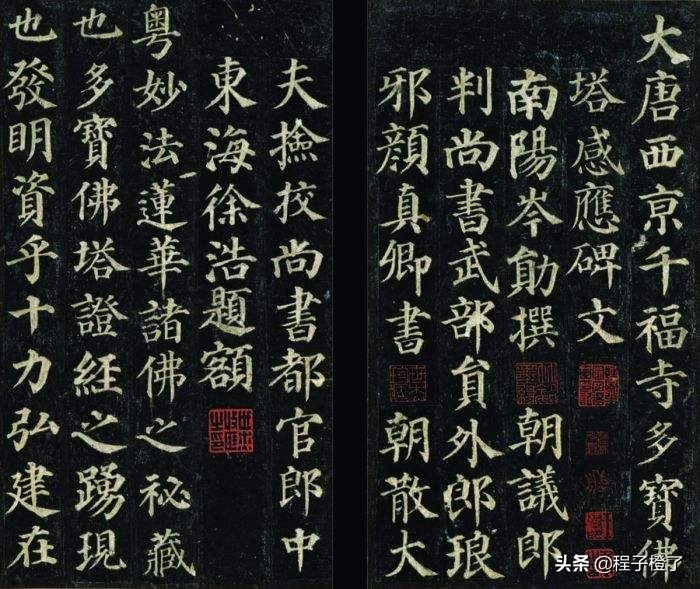 大唐西京千福寺多寶佛
塔感應碑文
南陽岑勛撰 朝議郎
判尚書武部員外郎琅
邪顏真卿書 朝散大
夫撿挍尚書都官郎中
東海徐浩題額
粵妙法蓮華諸佛之秘藏
也多寶佛塔證經之踴現
也發明資乎十力弘建在
头条 @程子橙了